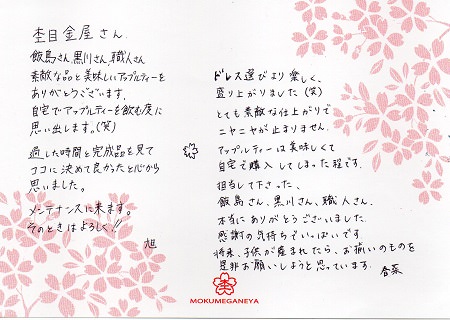 杢目金屋さん
飯島さん、黒川さん、職人さん
素敵な品と美味しいアップルティーを
ありがとうございます。
自宅でアップルティーを飲む度に
思い出します。(笑)
過した時間と完成品を見て
ココに決めて良かったと心から
思いました。
メンテナンスに来ます。
そのときはよろしく!!
旭
ドレス選びより楽しく、
盛り上がりました(笑)
とても素敵な仕上がりで
ニヤニヤが止まりません。
アップルティーは美味しくて
自宅で購入してしまった程です。
担当して下さった、
飯島さん、黒川さん、職人さん、
本当にありがとうございました。
感謝の気持ちでいっぱいです。
将来、子供が産まれたら、お揃いのものを
是非お願いしようと思っています。 香菜
MOKUMEGANEYA